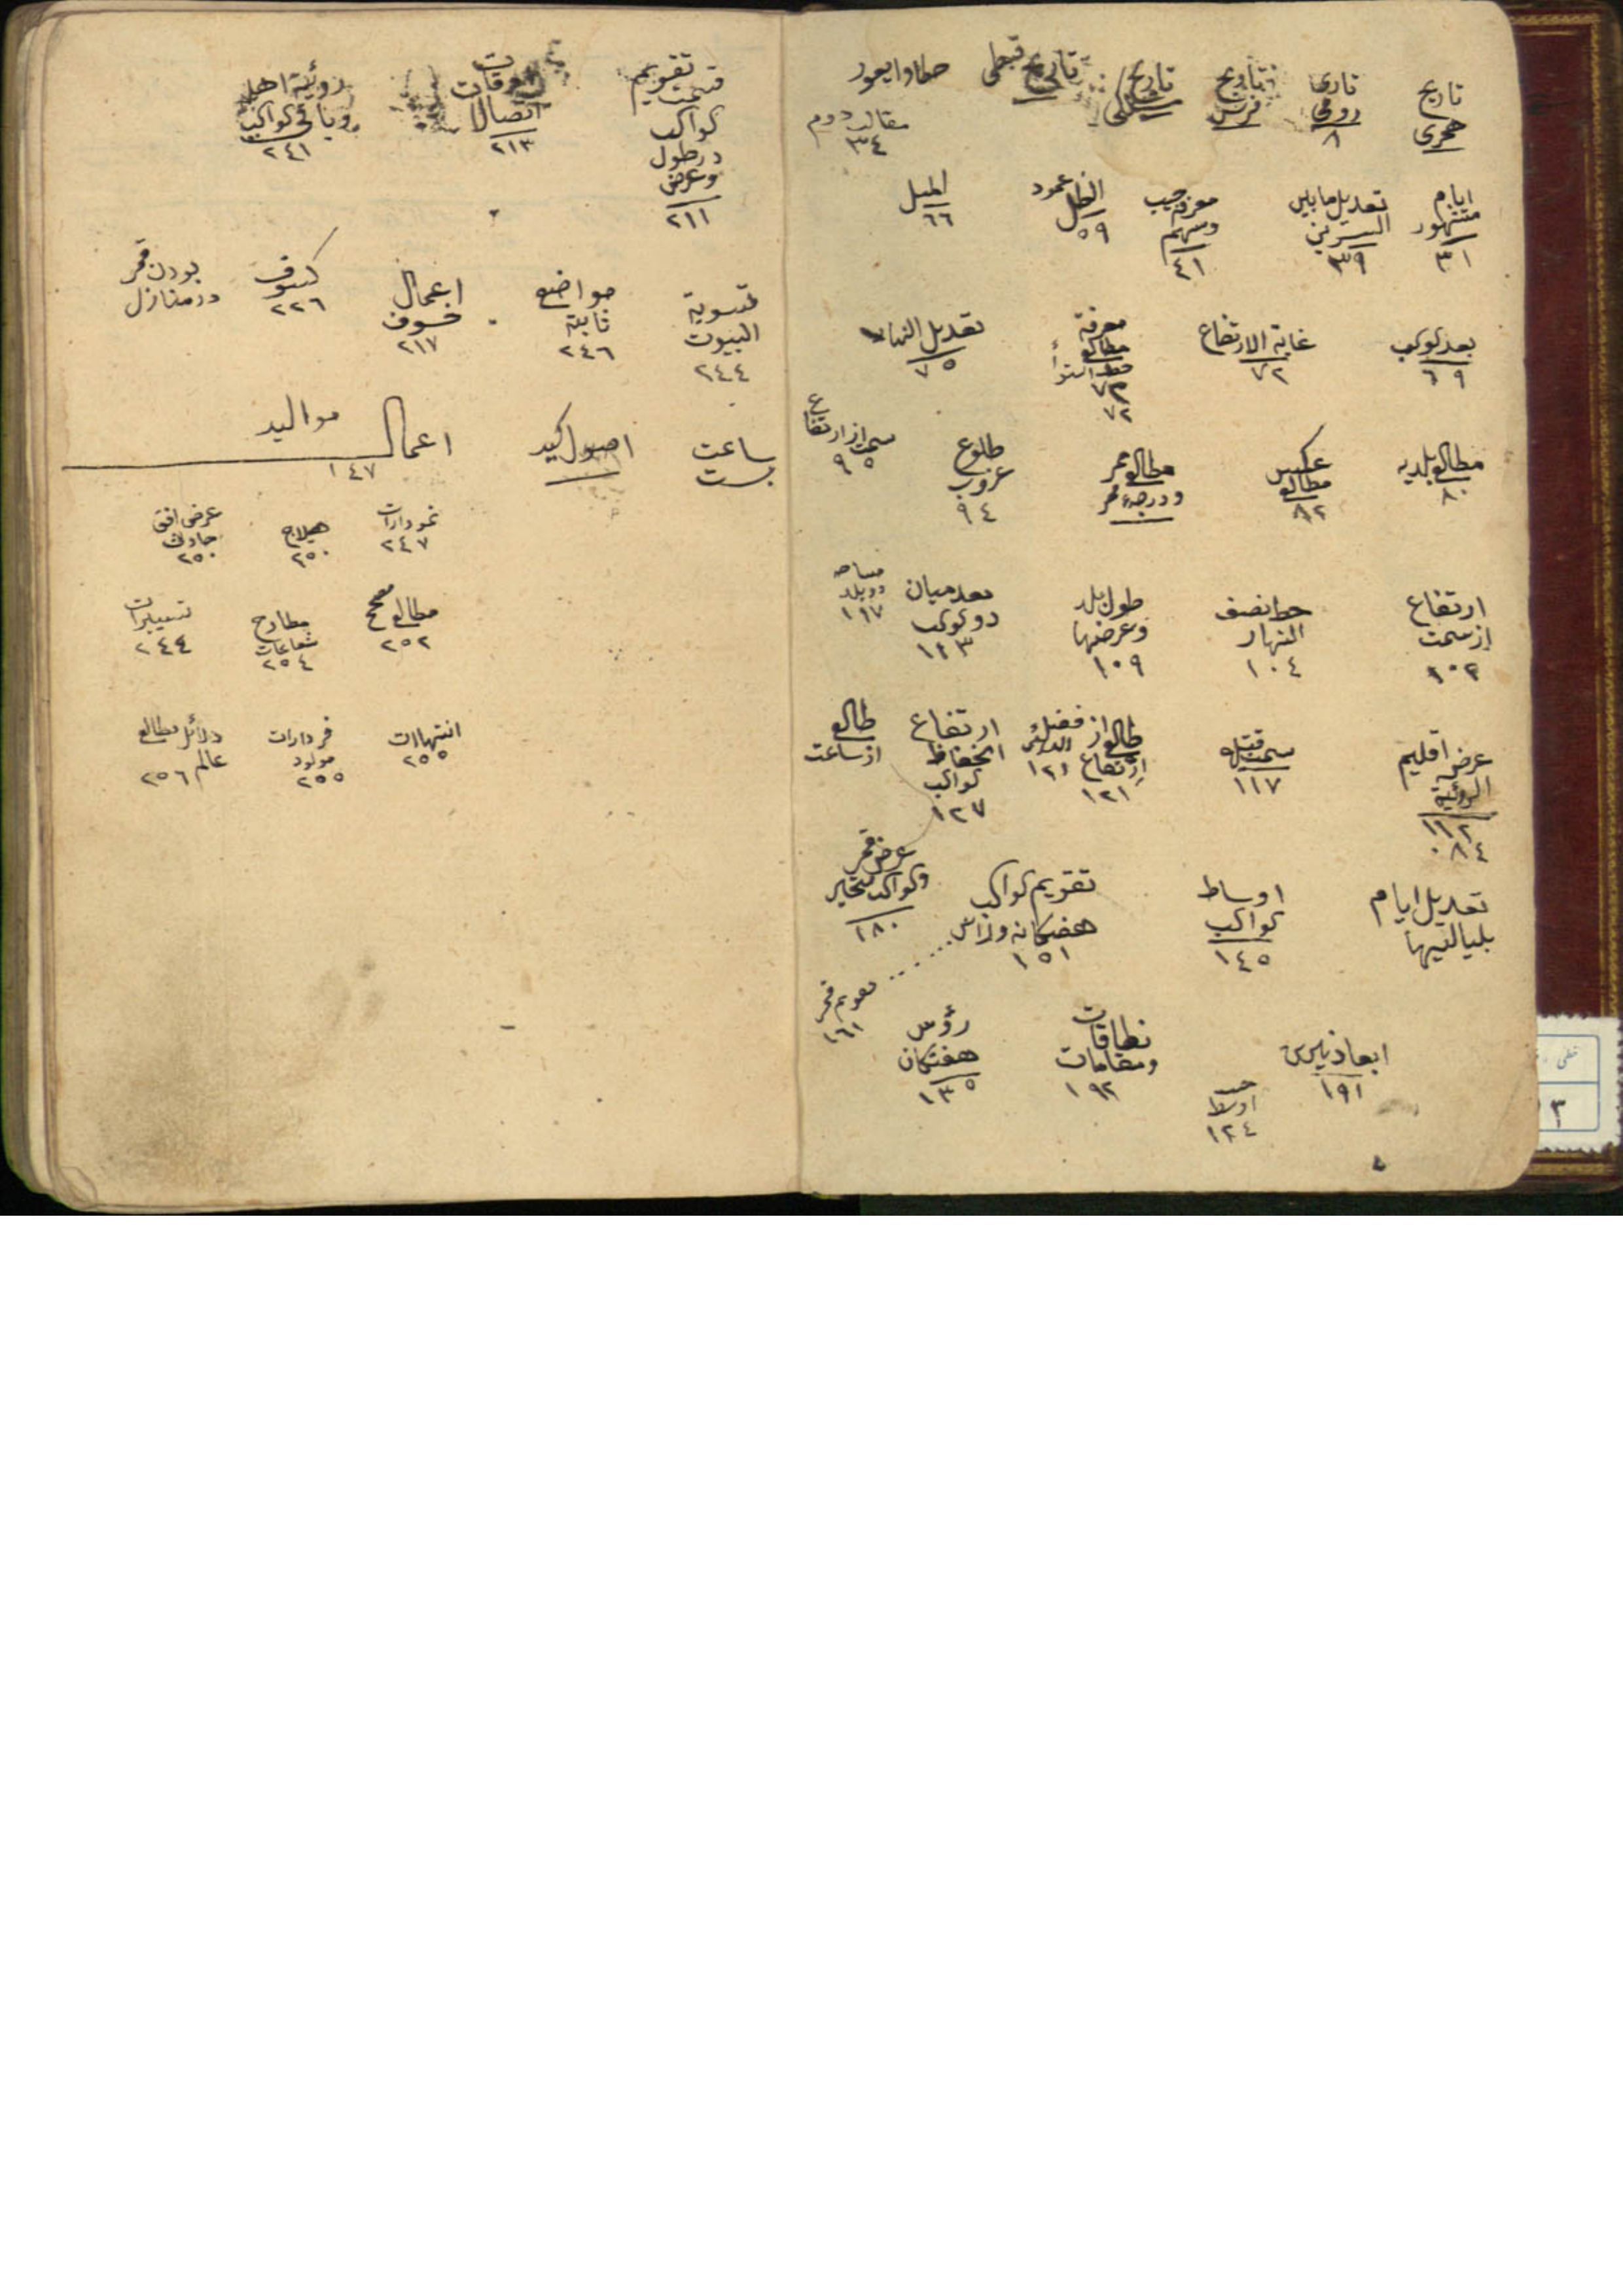 تاریخ هجری
تاریخ رومی ۸
تاریخ فرس
تاریخ ملکی
تاریخ قبطی
خطا و ایغور
مقالت دوم ۳٤
ایام مشهور ۳۱
تعدیل ما بین السطرین ۳۹
معرفة جیب و سهم ٤۱
الظل عمود ۵۹
المیل ٦٦
بعد کوکب ٦۹
غایة الارتفاع ۷۲
معرفة مطالع خط استوا ۷۳ ۷۲
تعدیل النهار ۷۵
مطالع بلدیه ۸۰
عکس مطالع ۸۲
مطالع ممر و درجه ممر
طلوع غروب ۹٤
سمت از ارتفاع ۹۵
ارتفاع از سمت ۱۰۲
خط نصف النهار ۱۰٤
طول بلد و عرضها ۱۰۹
بعد میان دو کوکب ۱۱۳
مساحه دو بلد ۱۱۷
عرض اقلیم الرؤیة ۱۱۲ ۸٤
سمت قبله ۱۱۷
طالع از ارتفاع ۱۲۱
از فضل الدائر ۱۲۱
ارتفاع انخفاظ کواکب ۱۲۷
طالع از ساعت
تعدیل ایام بلیالیها
اوساط کواکب ۱٤۵
تقویم کواکب هفتکانه و راس ۱۵۱
عرض قمر و کواکب متحیر ۱۸۰
تقویم قمر ۱٦۱
ابعاد نیرین ۱۹۱
اوسط ۱۲٤
نطاقات و مقامات ۱۹۲
رؤس هفتکان ۱۳۵
تقویم
کواکب
در طول
و عرض
۲۱۱
اتصال ۲۱۳
رؤیة اهله و باقی کواکب ۲٤۱
تسویة البیوت ۲٤٤
مواضع ثابتة ۲٤٦
اعمال خسوف ۲۱۷
کسوف ۲۲٦
بودن قمر در منازل
ساعت بست
اصول کید
اعمال موالید ۱٤۷
نمودارات ۲٤۷
هیلاج ۲۵۰
عرض افق حادث ۲۵۰
مطالع مصحح ۲۵۲
مطارح شعاعات ۲۵٤
تسییرات ۲٤٤
انتهاات ۲۵۵
فردارات مولود ۲۵۵
دلائل مطالع عالم ۲۵٦
۳